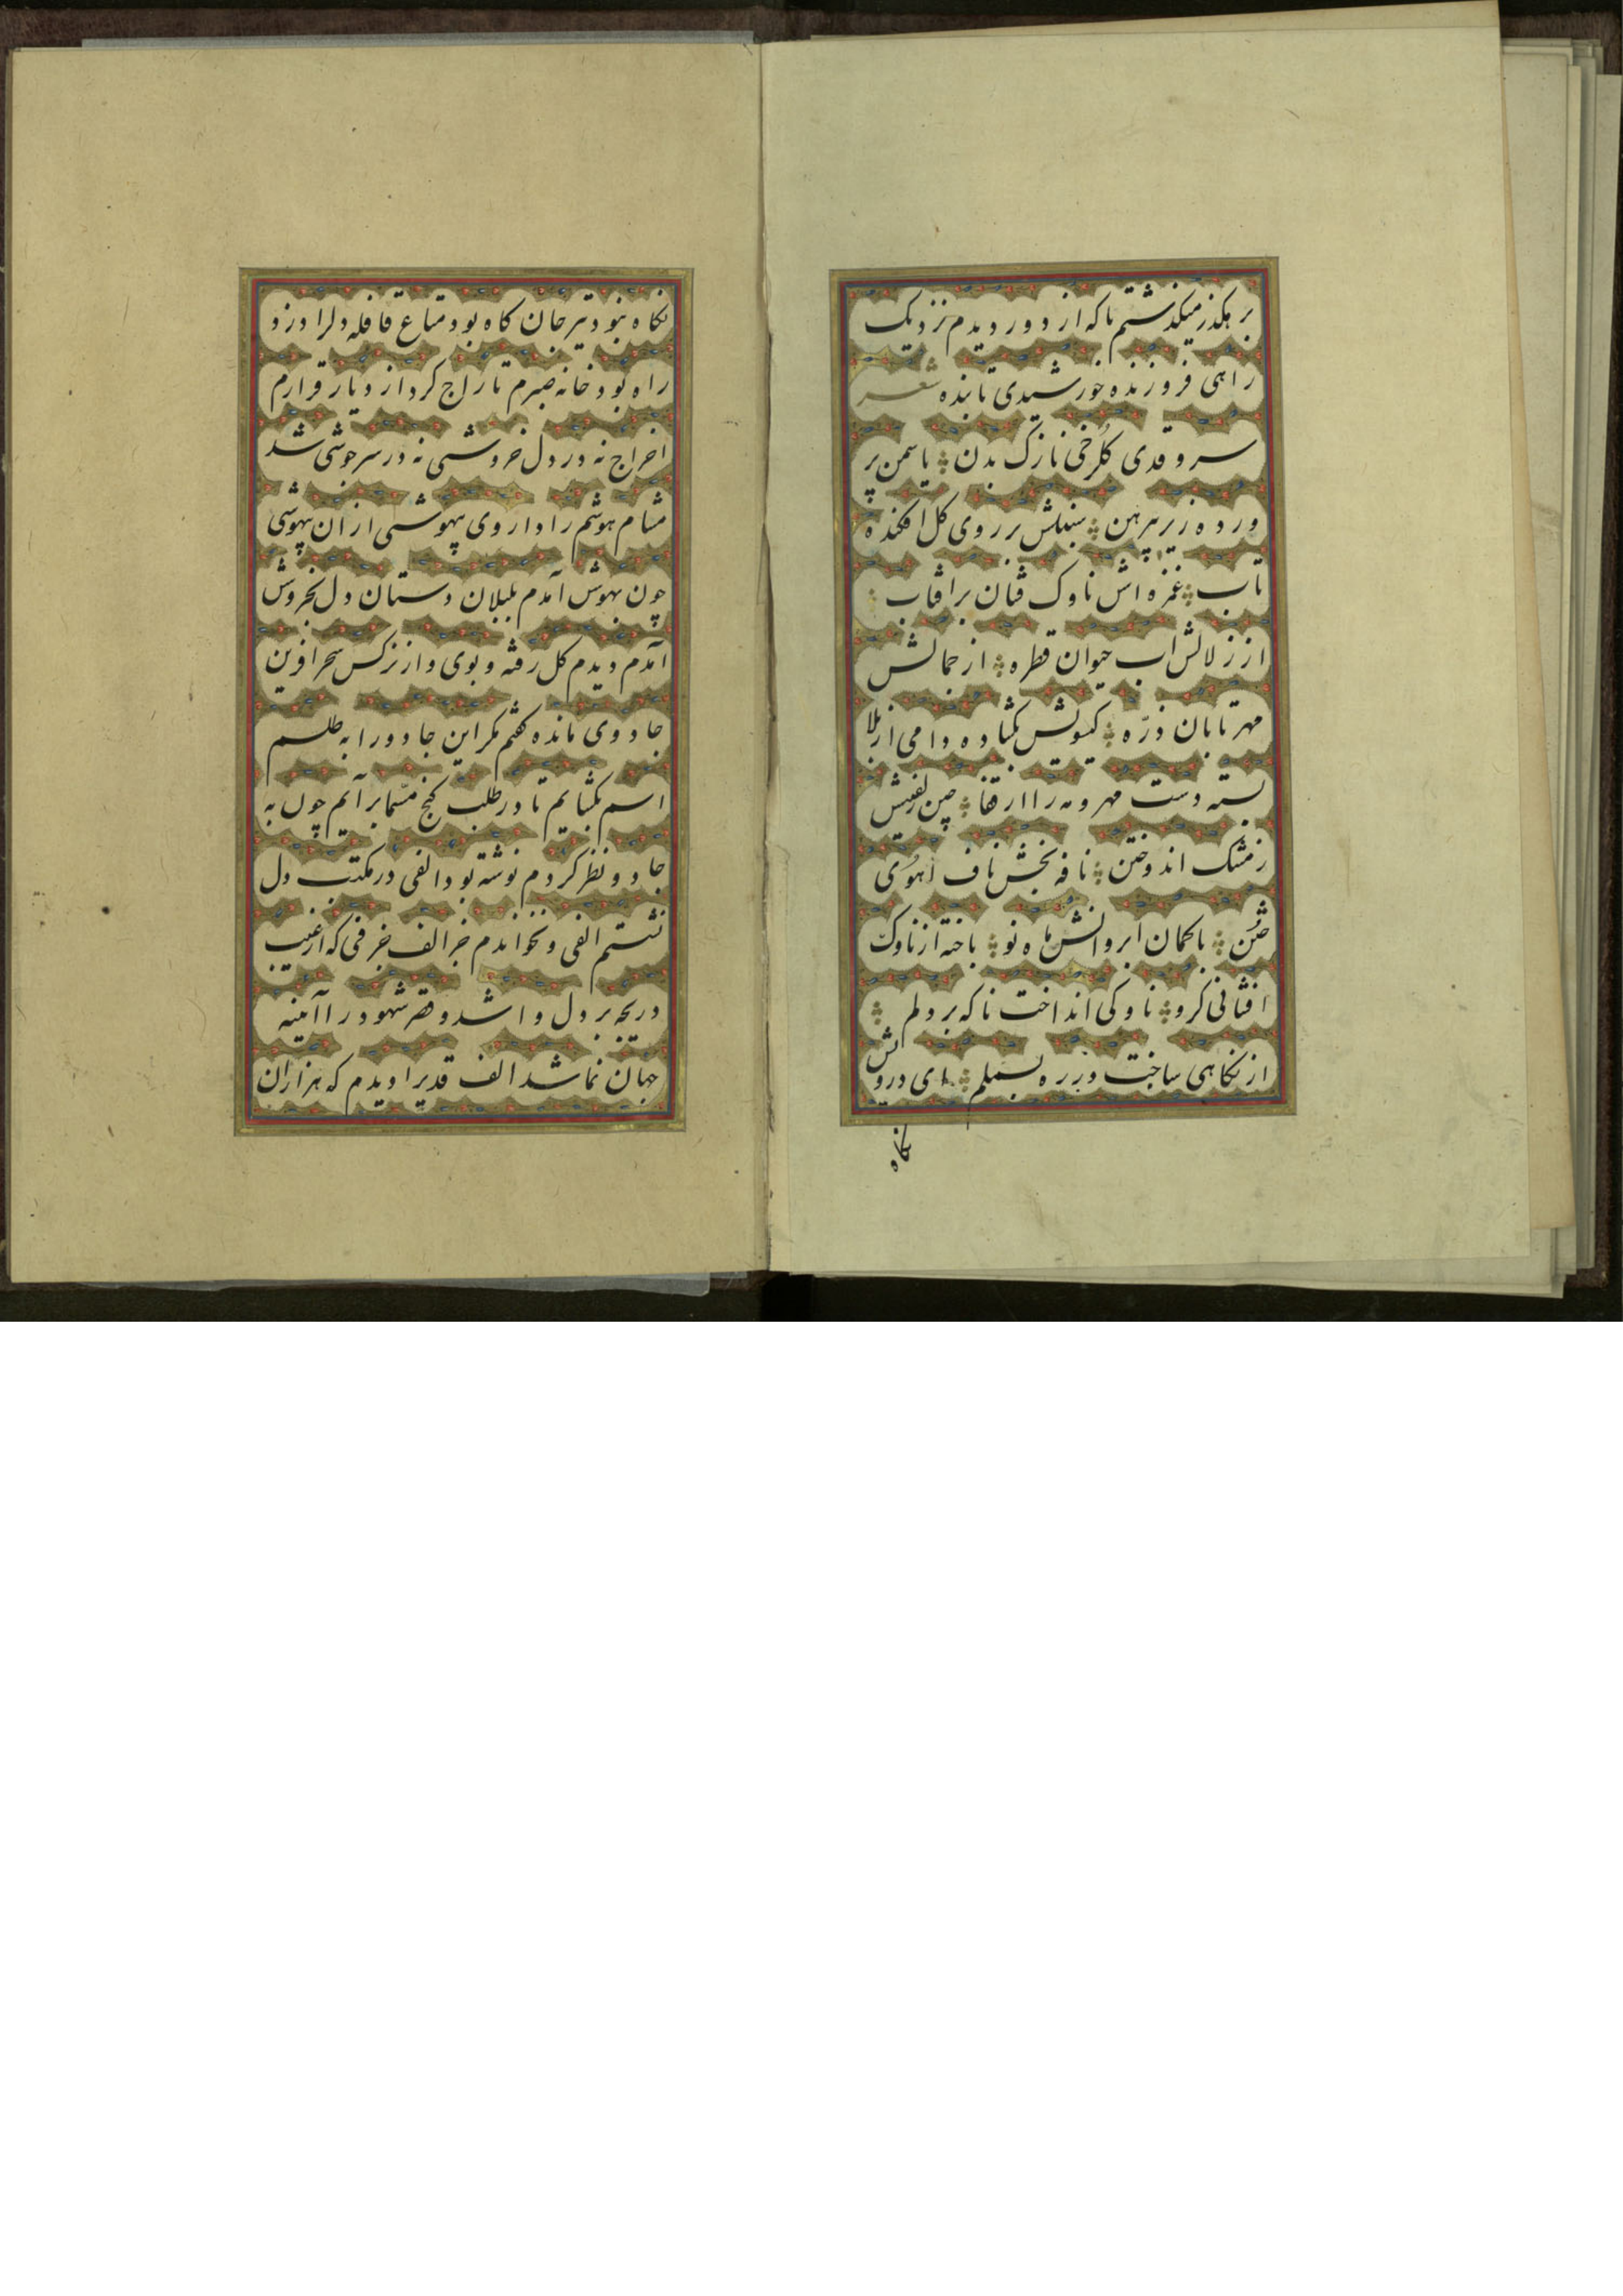 برهکذر میکذشتم ناکه از دور دیدم نزدیک
راهی فروزنده خورشیدی تابنده شعر
سرو قدی کلرخی نازک بدن یاسمن پر
ورده زیر پیرهن سنبلش بر روی کل افکنده
تاب غمزه اش ناوک فشان بر افتاب
از زلالش اب حیوان قطره از جمالش
مهر تابان ذرّه کیسویش بکشاده دامی از بلا
بسته دست مهر و مه را از قفا چین زلفیش
ز مشک اندوختن نافه بخش ناف اهوی
ختن با کمان ابروانش ماه نو باخته از ناوک
افشانی کرو ناوکی انداخت ناکه بر دلم
از نکاهی ساخت در ره بسملم ای درویش
نکاه
نکاه نبود تیر جان کاه بود متاع قافله دلرا دزد
راه بود خانه صبرم تاراج کرد از دیار قرارم
اخراج نه در دل خروشی نه در سر جوشی شد
مشام هوشم را داروی بیهوشی از ان بیهوشی
چون بهوش آمدم بلبلان دستان دل بخروش
آمدم دیدم کل رفته و بوی و از نرکس سحر افرین
جادوی مانده کفتم مکر این جادو را به طلسم
اسم بکشایم تا در طلب کنج مسّما بر آیم چون به
جادو نظر کردم نوشته بود الفی در مکتب دل
نشستم الفی و نخواندم جز الف حرفی که از غیب
دریچه بر دل وا شد و هر شهود را آاینه
جهان نما شد الف قدیرا دیدم که هزاران